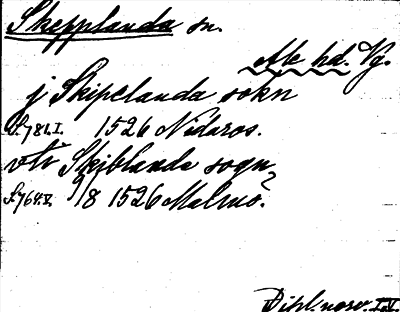 Skepplanda sn.
Ale hd. Vg.
j Skipelanda sokn
S. 781. I. 1526 Nidaros.
vti Skiblanda sogn
S. 764. V. 9/8 1526 Malmö.
Dipl. norv. I. V.